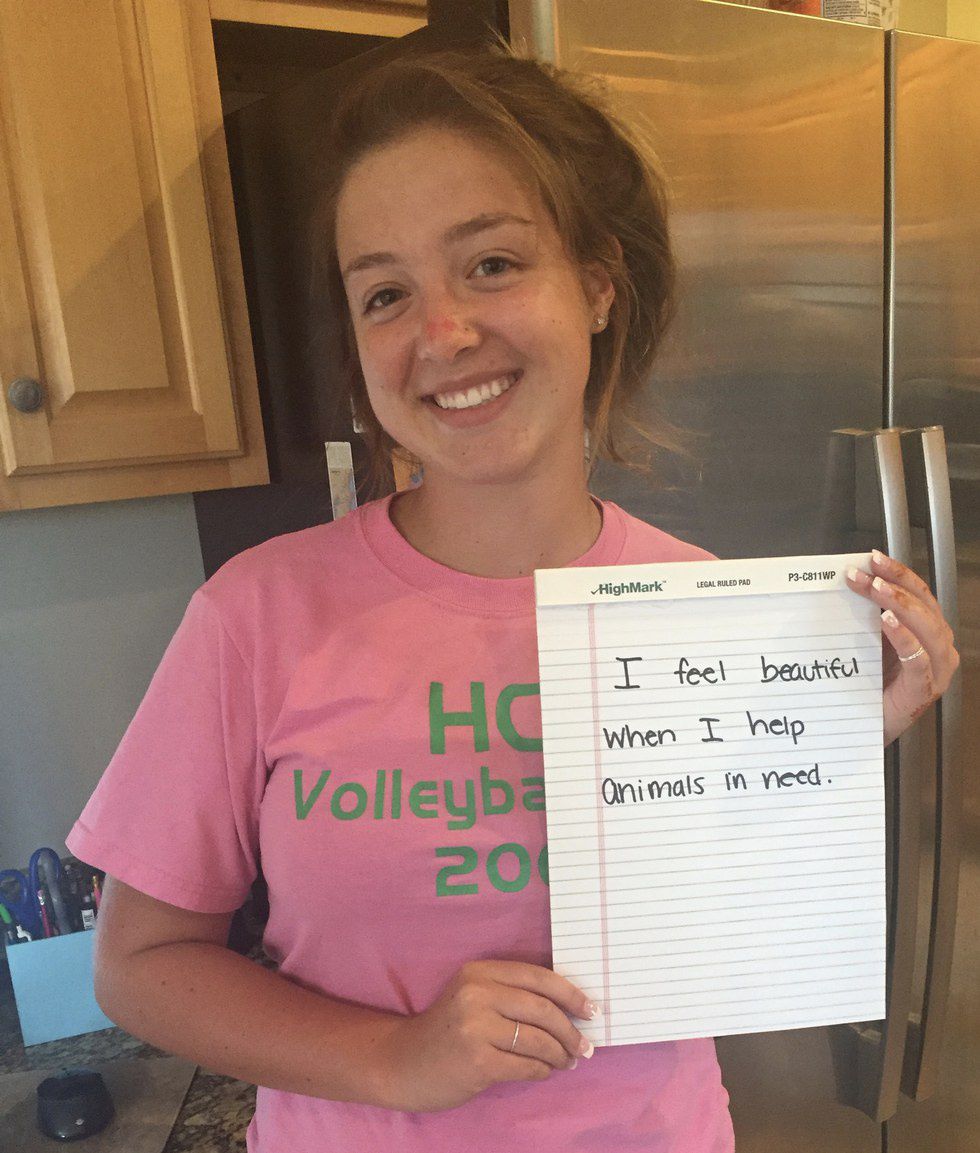 ✓HighMark™ LEGAL RULED PAD P3-C811WP
I feel beautiful
when I help
animals in need.